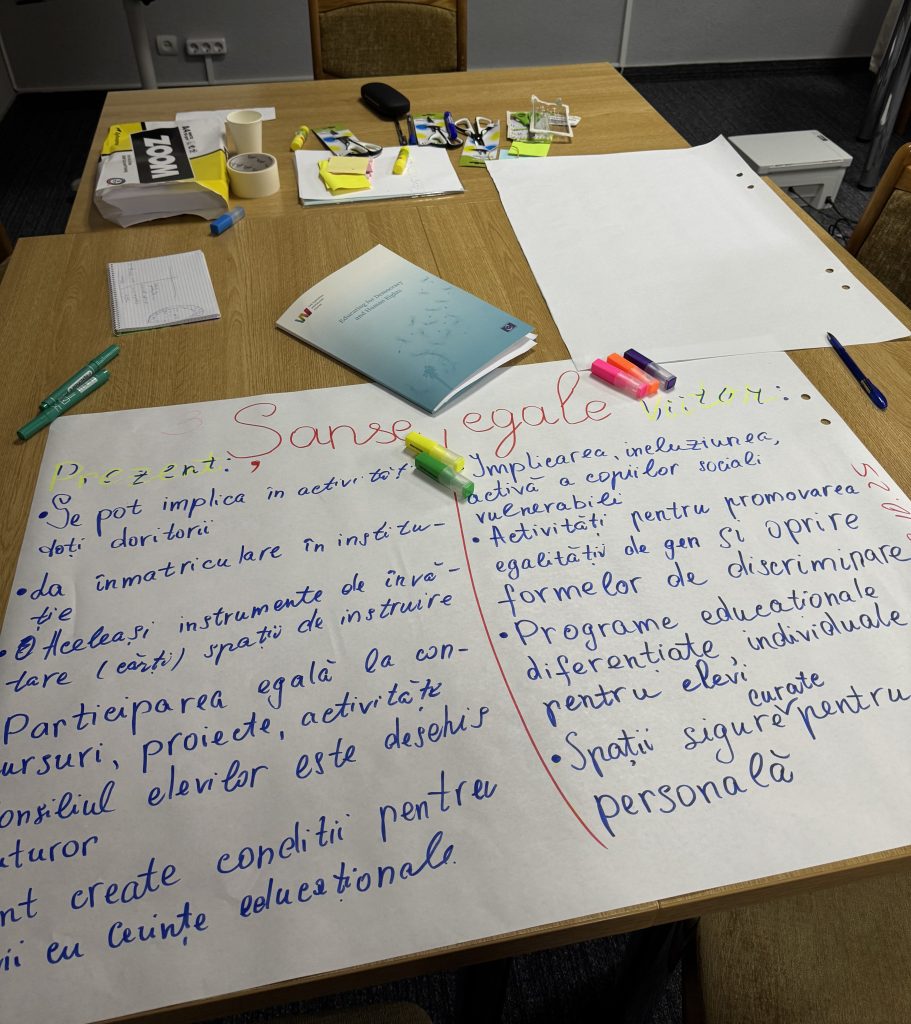 ZOOM
A4
Educating for Democracy
and Human Rights
Șanse egale
Prezent:
• Se pot implica în activități
toți doritorii
• La înmatriculare în institu-
ție
• Aceleași instrumente de învă-
tare (cărți) spații de instruire
Participarea egală la con-
ursuri, proiecte, activități
onsiliul elevilor este deschis
uturor
nt create conditii pentru
vii cu cerințe educaționale.
Viitor:
Implicarea, incluziunea,
activă a copiilor sociali
vulnerabili
• Activități pentru promovarea
egalității de gen si oprire
formelor de discriminare
• Programe educationale
diferentiate, individuale
pentru elevi
curate
• Spații sigure pentru
personală